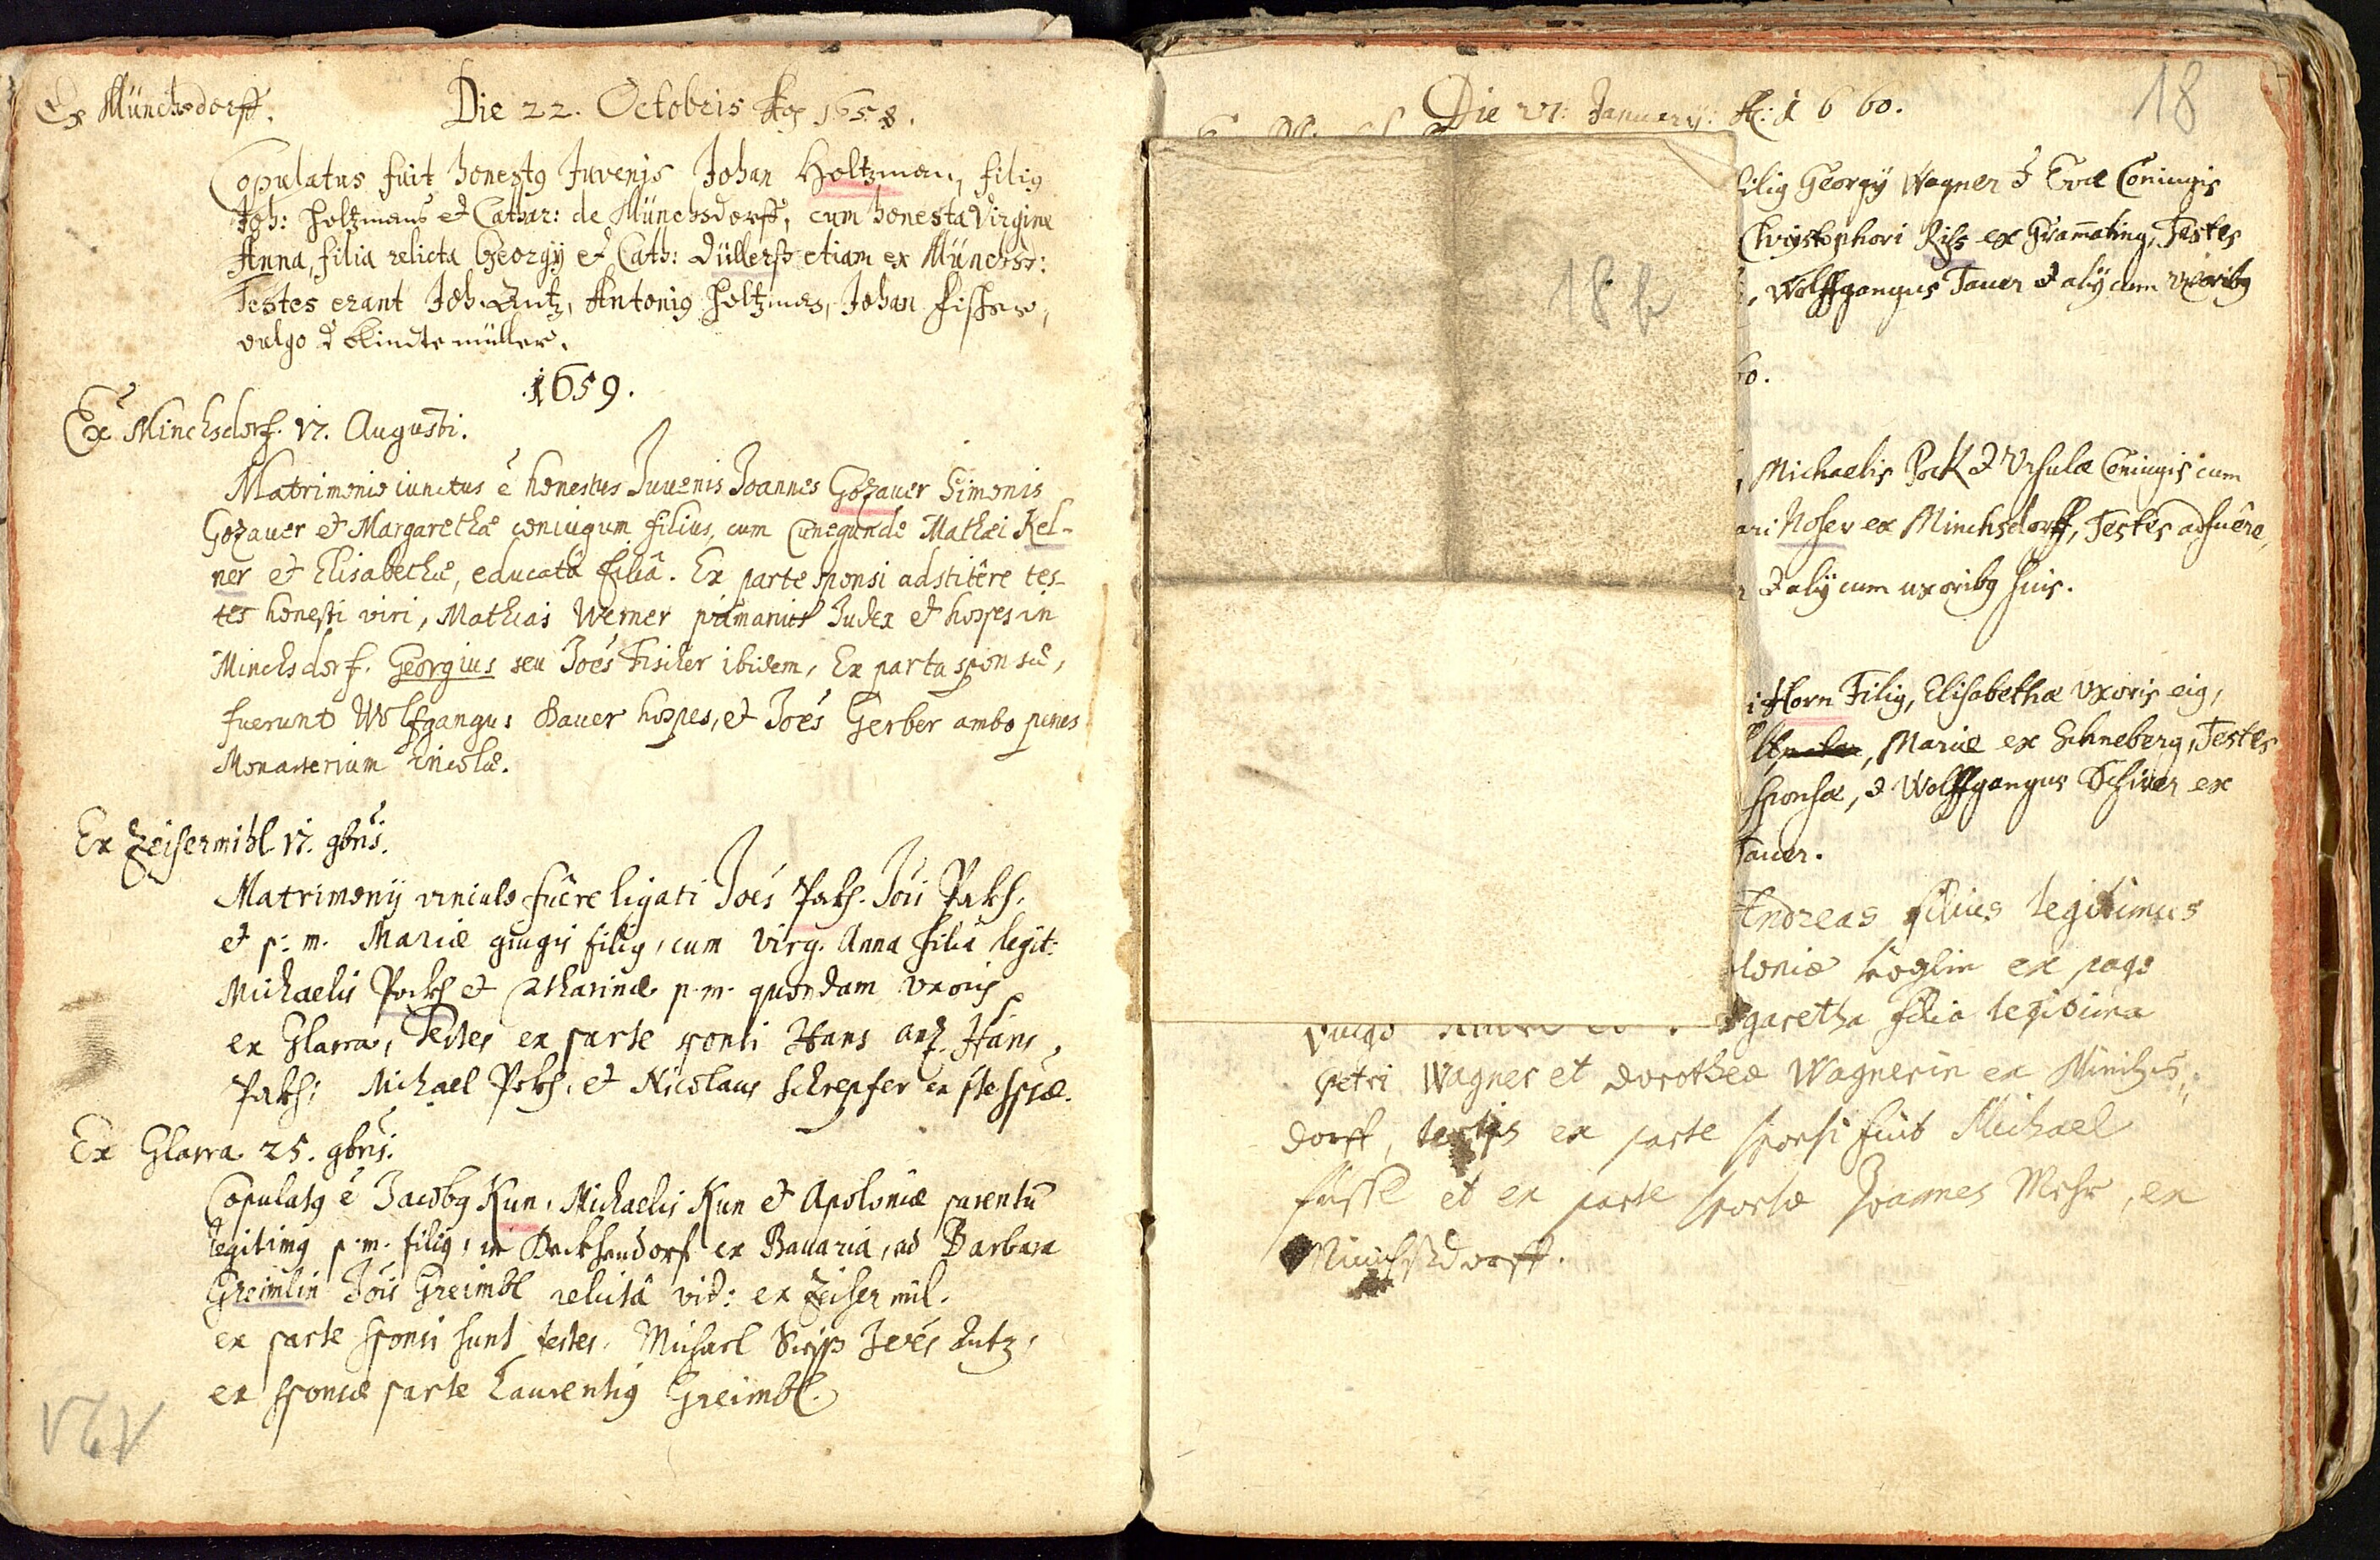 Ex Münchsdorff. Die 22. Octobris Aō 1658.
Copulatus fuit honestq Juvenis Johan Holtzman, filiq
Joh: Holtzmans et Cathar: de Münchsdorff, cum honesta Virgine
Anna, filia relicta Georgÿ et Cath: Düllerß etiam ex Münchsd:
Testes erant Joh: Lutz, Antoniq Holtzman, Johan Fischer,
vulgo d blindte müller.
.1659.
Ex Minchsdorf. 17. Augusti.
Matrimonio iunctus ē honestus Juuenis Joannes Gozauer Simonis
Gozauer et Margarethæ coniugum filius, cum Cunegunde Mathæi Kel-
ner et Elisabethæ, educatâ filiâ. Ex parte sponsi adstitêre tes-
tes honesti viri, Mathias Werner primarius Judex et hospes in
Minchsdorf. Georgius seu Joēs Fischer ibidem, Ex parta sponsæ,
fuerunt Wolfgangus Bauer hospes, et Joēs Gerber ambo penes
Monasterium incolæ.
Ex Zeisermihl 17. 9bris.
Matrimonÿ vinculo fuêre ligati Joēs Pökh. Jōis Pökh.
et p: m. Mariæ giugis filiq, cum Virg. Anna filiâ legit:
Michaelis Pockh et Catharinæ p. m. quondam Vxoris
ex Glarra, Testes ex parte sponsi Hans
Michael Pökh. et Nicolaus Schrepfer ex pte spsæ.
Ex Glarra 25. 9bris.
Copulatq ē Jacobq Kun. Michaelis Kun et Apoloniæ parentū
legitimq p. m. filiq, in Deckhendorf ex Bauaria, ad Barbara
Greimlin Jōis Greimbl relictâ vid: ex Zeiser mil.
ex parte sponsi sunt testes. Michael Joēs Lutz,
ex sponsæ parte Laurentiq Greimbl.
18
Die 27: Januarÿ: A: 1660.
18 b
filiq Georgÿ Wagner & Evæ Coniugis
Christophori Riss ex Gramating, Testes
, Wolffgangus Tauer & alÿ cum vxoribq
60.
, Michaelis Pock & Vrsulæ Coniugis cum
ari Noser ex Minchsdorff, Testes adfuêre,
& alÿ cum uxoribq suis.
i Horn Filiq, Elisabethæ Vxoris eiq,
, Mariæ ex Schneberg, Testes
sponsæ, & Wolffgangus Schiver ex
Tauer.
Andreas filius legitimus
loniæ ex pago
vulgo garetha filia legitima
petri Wagner et dorothea Wagnerin ex Minichs-
dorff, testis ex parte sponsi fuit Michael
et ex parte sponsæ Joannes Mehr, ex
Minichsdorff.